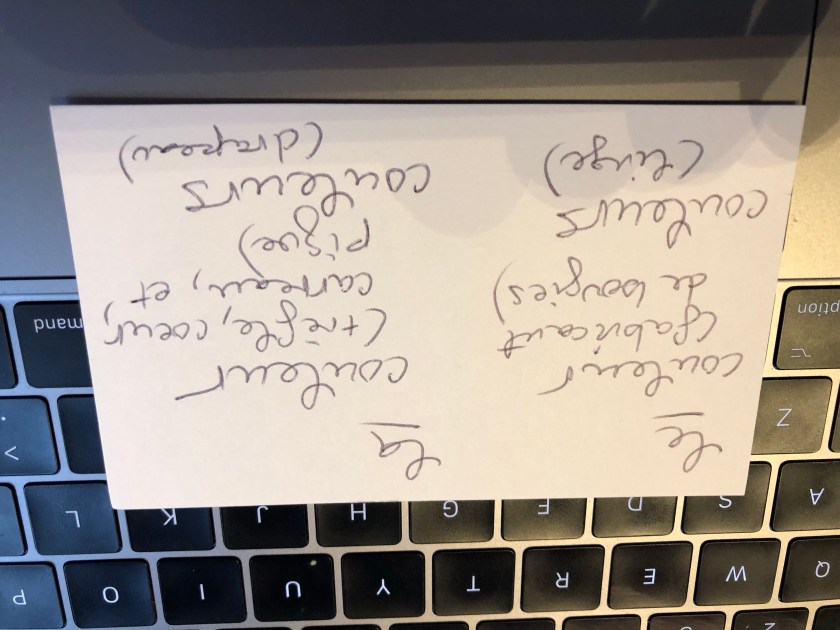 Q W E R T Y U I O P
A S D F G H J K L
Z
Le
couleur
(fabricant
de bougies)
couleurs
(linge)
La
couleur
(trèfle, coeur,
carreau, et
pique)
couleurs
(drapeau)
ption
mand